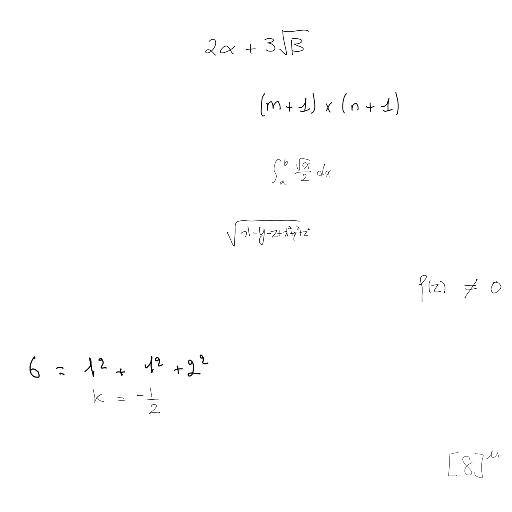 2α + 3√B
(m + 1) × (n + 1)
∫_a^b √x/2 dx
√(x-y-z+x²+y²+z²)
f(z) ≠ 0
6 = 1² + 1² + 2²
k = -1/2
[8]^μ